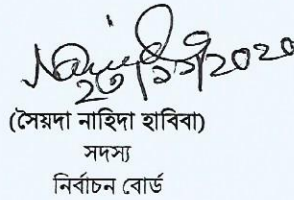 ২৩/১১/2020
(সৈয়দা নাহিদা হাবিবা)
সদস্য
নির্বাচন বোর্ড